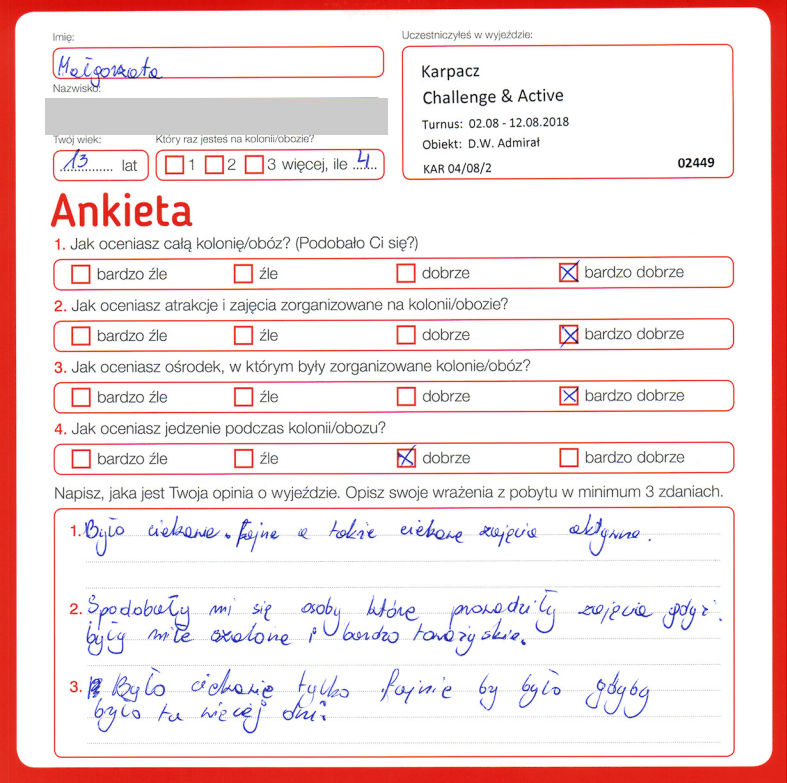 Imię:
Małgorzata
Nazwisko:
Twój wiek:
13 lat
Który raz jesteś na kolonii/obozie?
1 2 3 więcej, ile 4
Uczestniczyłeś w wyjeździe:
Karpacz
Challenge & Active
Turnus: 02.08 - 12.08.2018
Obiekt: D.W. Admirał
KAR 04/08/2 02449
Ankieta
1. Jak oceniasz całą kolonię/obóz? (Podobało Ci się?)
bardzo źle źle dobrze bardzo dobrze
2. Jak oceniasz atrakcje i zajęcia zorganizowane na kolonii/obozie?
bardzo źle źle dobrze bardzo dobrze
3. Jak oceniasz ośrodek, w którym były zorganizowane kolonie/obóz?
bardzo źle źle dobrze bardzo dobrze
4. Jak oceniasz jedzenie podczas kolonii/obozu?
bardzo źle źle dobrze bardzo dobrze
Napisz, jaka jest Twoja opinia o wyjeździe. Opisz swoje wrażenia z pobytu w minimum 3 zdaniach.
1. Było ciekawie. Fajne a także ciekawe zajęcia aktywne.
2. Spodobały mi się osoby które prowadziły zajęcia gdyż
były miłe szalone i bardzo toważyskie.
3. Było ciekawie tylko fajnie by było gdyby
było tu więcej dni.